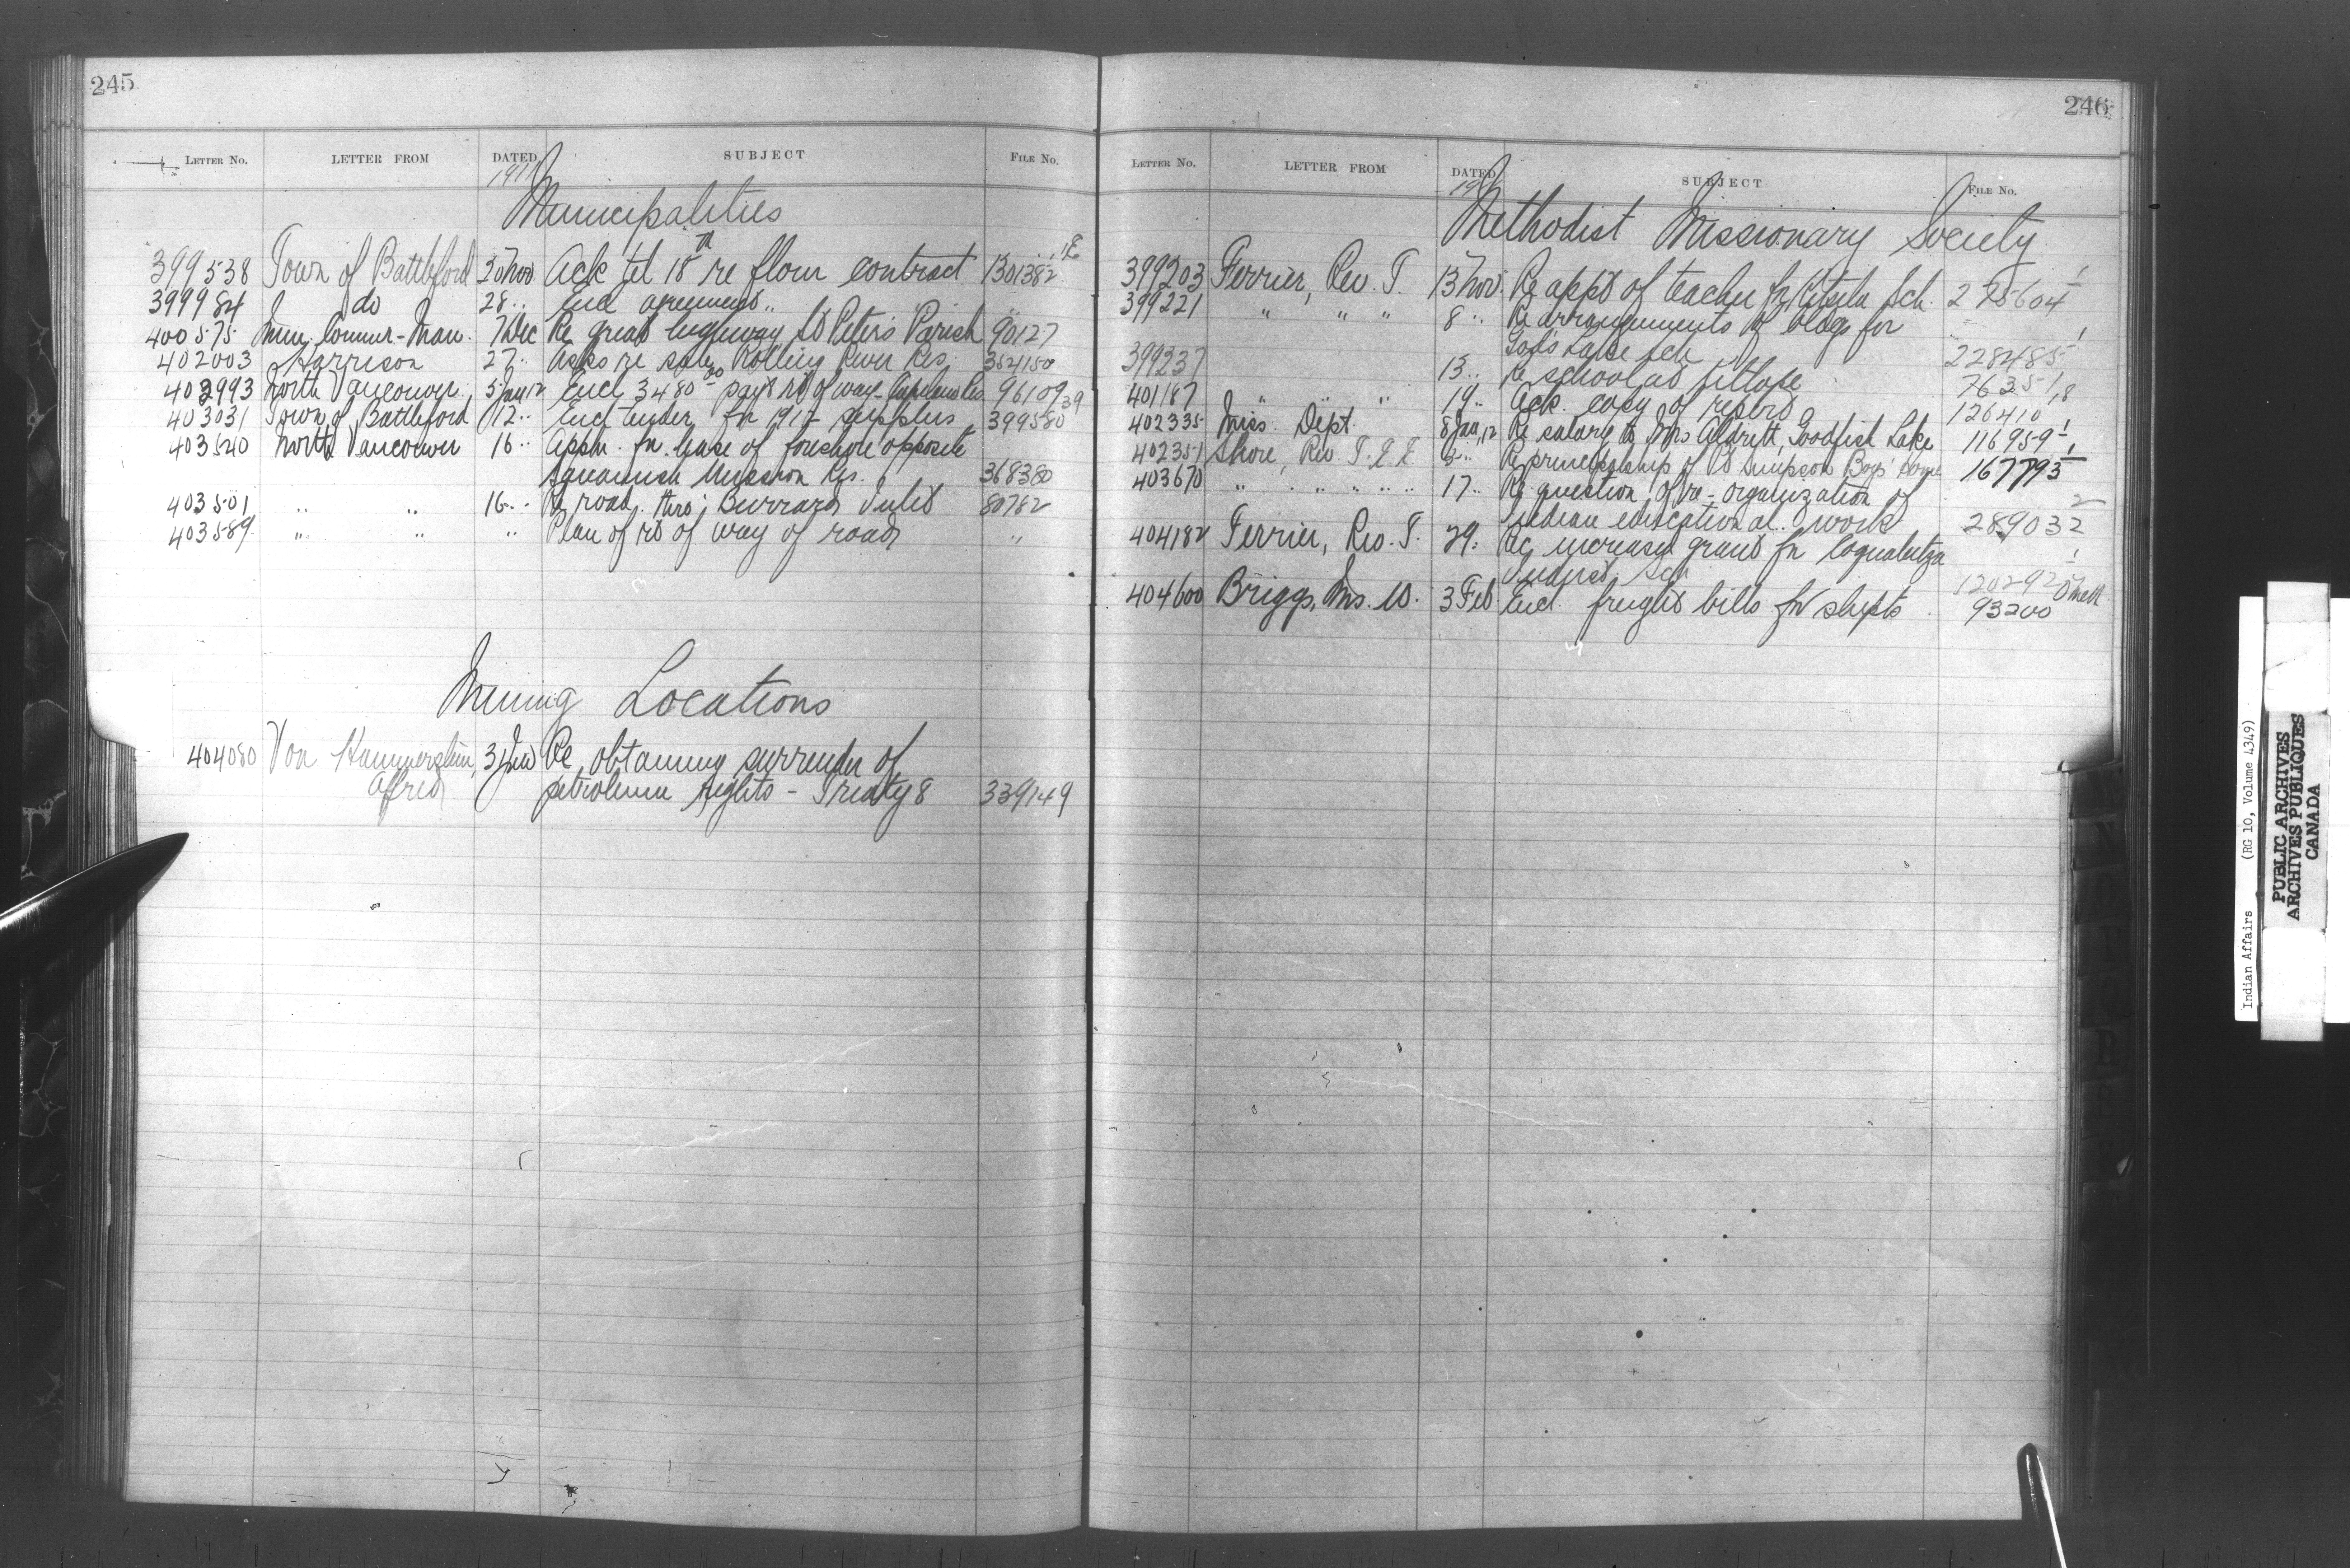 245
LETTER No. LETTER FROM DATED SUBJECT FILE No.
1911
Municipalities
399538 Town of Battleford 20 Nov Ack tel 18th re flour contract 130138² 1E
399984 do 28 .. Encl agreement .. "
400575 Mun. Commr - Man. 7 Dec Re great highway St Peter's Parish 90127
402003 Harrison 27 .. Asks re sale Rolling River Res. 354150
402993 North Vancouver 5 Jan 12 Encl 3480.00 payt rt of way - Capilano Res 96109 39
403031 Town of Battleford 12 .. Encl tender for 1912 supplies 399580
403540 North Vancouver 16 .. Appln. for lease of foreshore opposite
Squamish Mission Res. 368380
403501 " " 16 .. Re road thro' Burrard Inlet 80782
403589 " " " Plan of rt of way of road "
Mining Locations
404080 Von Hammerstein, 31 Jan Re obtaining surrender of
Alfred petroleum rights - Treaty 8 339149
246
LETTER No. LETTER FROM DATED SUBJECT FILE No.
Methodist Missionary Society
399203 Ferrier, Rev. T. 13 Nov. Re appt of teacher for Sch. 275604 1
399221 " " " 8 .. Re arrangements of bldgs for
God's Lake Sch 228485 1
399237 13 .. Re school at 7635 1,8
401187 " " " 19 .. Ack. copy of report 126410 1
402335 Miss. Dept. 8 Jan, 12 Re salary to Mrs Aldritt, Goodfish Lake 116959 1
402351 Shore, Rev. T. E. E. 3 .. Re principalship of Pt Simpson Boys' Home 167793 1
403670 " " " " 17 .. Re question of re-organization of
Indian educational work 289032 2
404182 Ferrier, Rev. T. 29. Re increased grant for Coqualeetza
Indust. Sch 120292 1
404600 Briggs, Ms. W. 3 Feb Encl. freight bills for shipts. 93200
Indian Affairs (RG 10, Volume 4349)
PUBLIC ARCHIVES
ARCHIVES PUBLIQUES
CANADA